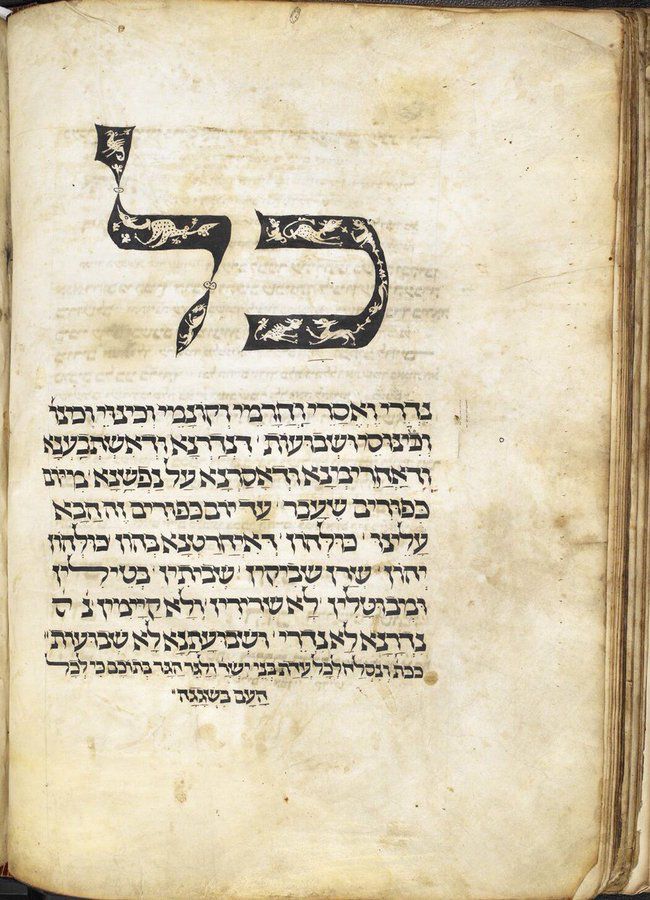 כל
נדרי ואסרי וחרמי וקונמי וכינויי
וקינוסי ושבועות דנדרנא ודאשתבענא
ודאחרימנא ודאסרנא על נפשנא מיום
כפורים שעבר עד יום כפורים זה הבא
עלינו כולהון דאיחרטנא בהון כולהון
יהון שרן שביקין שביתין בטילין
ומבוטלין לא שרירין ולא קיימין
נדרנא לא נדרי ושבועתנא לא שבועות
ככת ונסלח לכל עדת בני ישר ולגר הגר בתוכם כי לכל
העם בשגגה